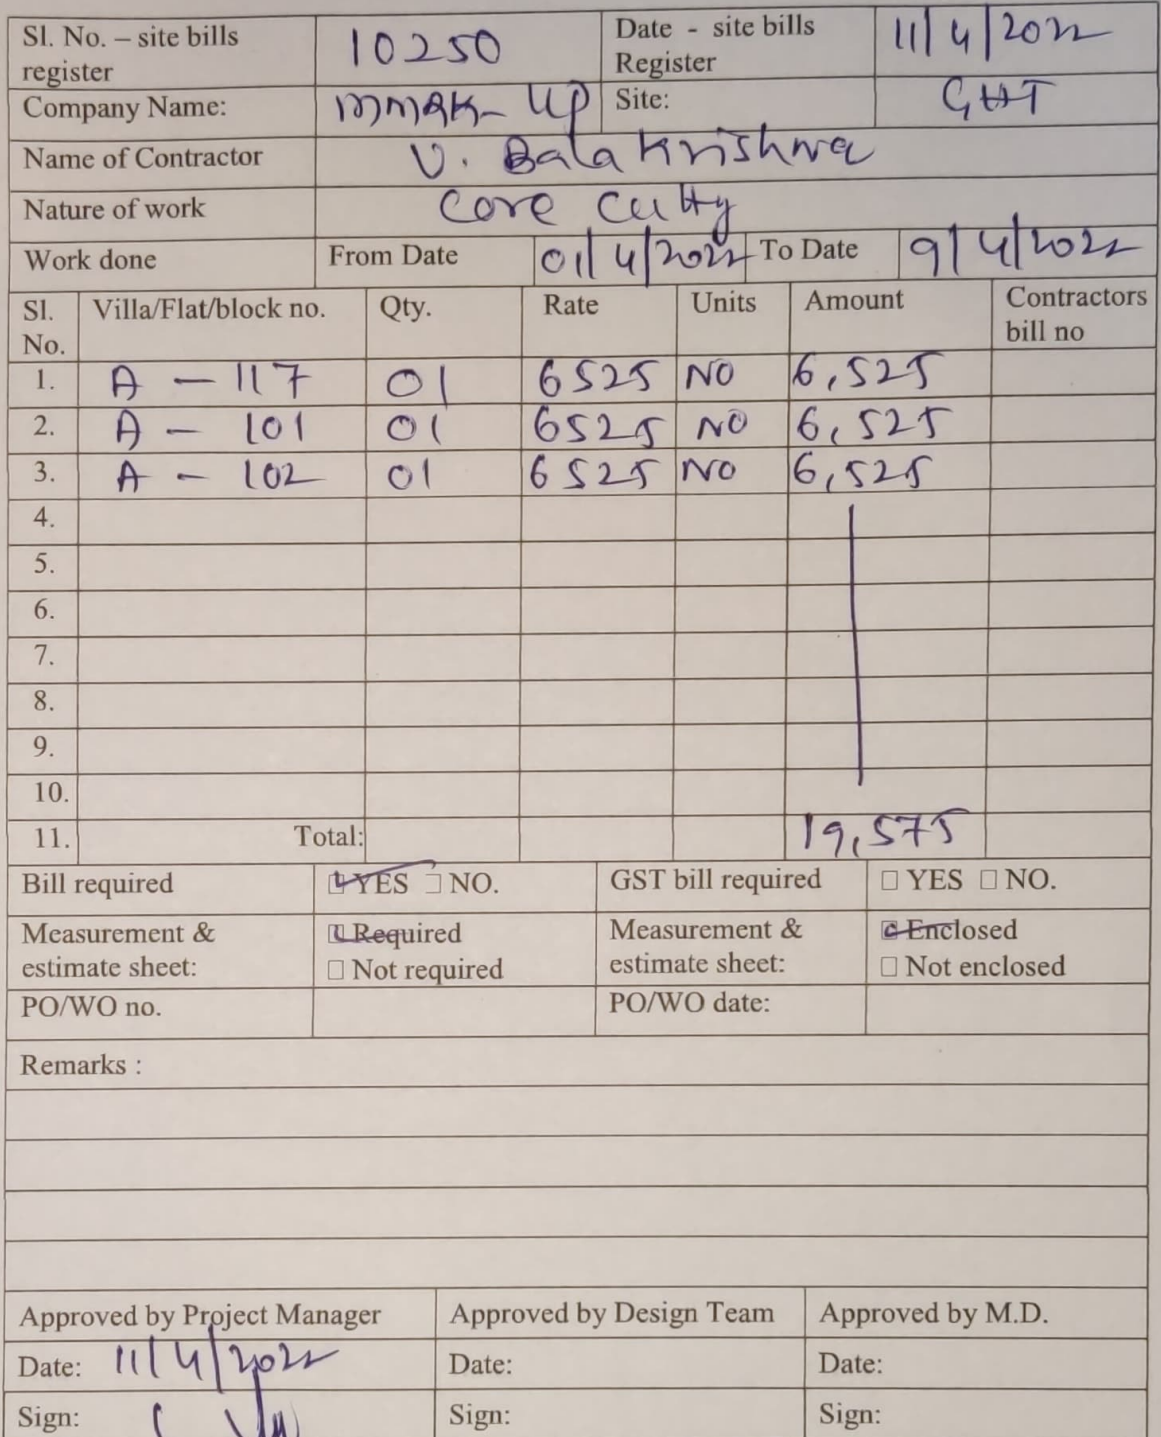 Sl. No. – site bills register 10250 Date - site bills Register 11/4/2022
Company Name: MMRK-UP Site: GHT
Name of Contractor V. Bala Krishna
Nature of work Core Cutty
Work done From Date 01/4/2022 To Date 9/4/2022
Sl. No. Villa/Flat/block no. Qty. Rate Units Amount Contractors bill no
1. A - 117 01 6525 NO 6,525
2. A - 101 01 6525 NO 6,525
3. A - 102 01 6525 NO 6,525
4.
5.
6.
7.
8.
9.
10.
11. Total: 19,575
Bill required YES NO. GST bill required YES NO.
Measurement & estimate sheet: Required Not required Measurement & estimate sheet: Enclosed Not enclosed
PO/WO no. PO/WO date:
Remarks :
Approved by Project Manager Approved by Design Team Approved by M.D.
Date: 11/4/2022 Date: Date:
Sign: Sign: Sign: